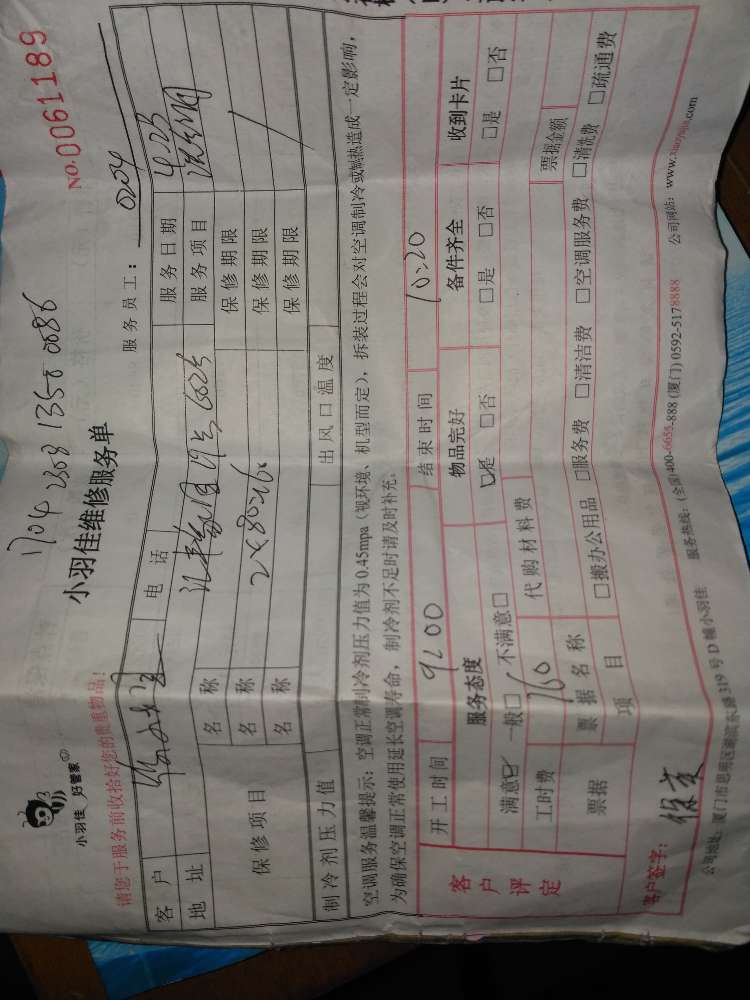 小羽佳 好管家
请您于服务前收拾好您的贵重物品!
小羽佳维修服务单
NO.0061189
服务员工: 0204
客户
电话
服务日期 4.25
地址
服务项目
保修项目
名称
保修期限
名称
保修期限
名称
保修期限
制冷剂压力值
出风口温度
空调服务温馨提示:空调正常制冷剂压力值为0.45mpa(视环境、机型而定),拆装过程会对空调制冷或制热造成一定影响,
为确保空调正常使用延长空调寿命,制冷剂不足时请及时补充。
客户评定
开工时间 9:00 结束时间 10:20
服务态度 物品完好 备件齐全 收到卡片
满意☑ 一般□ 不满意□ ☑是 □否 □是 □否 □是 □否
工时费 160 代购材料费
票据 票据名称 票据金额
项目 □搬办公用品 □服务费 □清洁费 □空调服务费 □清洗费 □疏通费
客户签字:
公司地址:厦门市思明区湖滨东路319号D幢小羽佳 服务热线:(全国)400-6655-888 (厦门)0592-5178888 公司网站:www.xiaoyujia.com